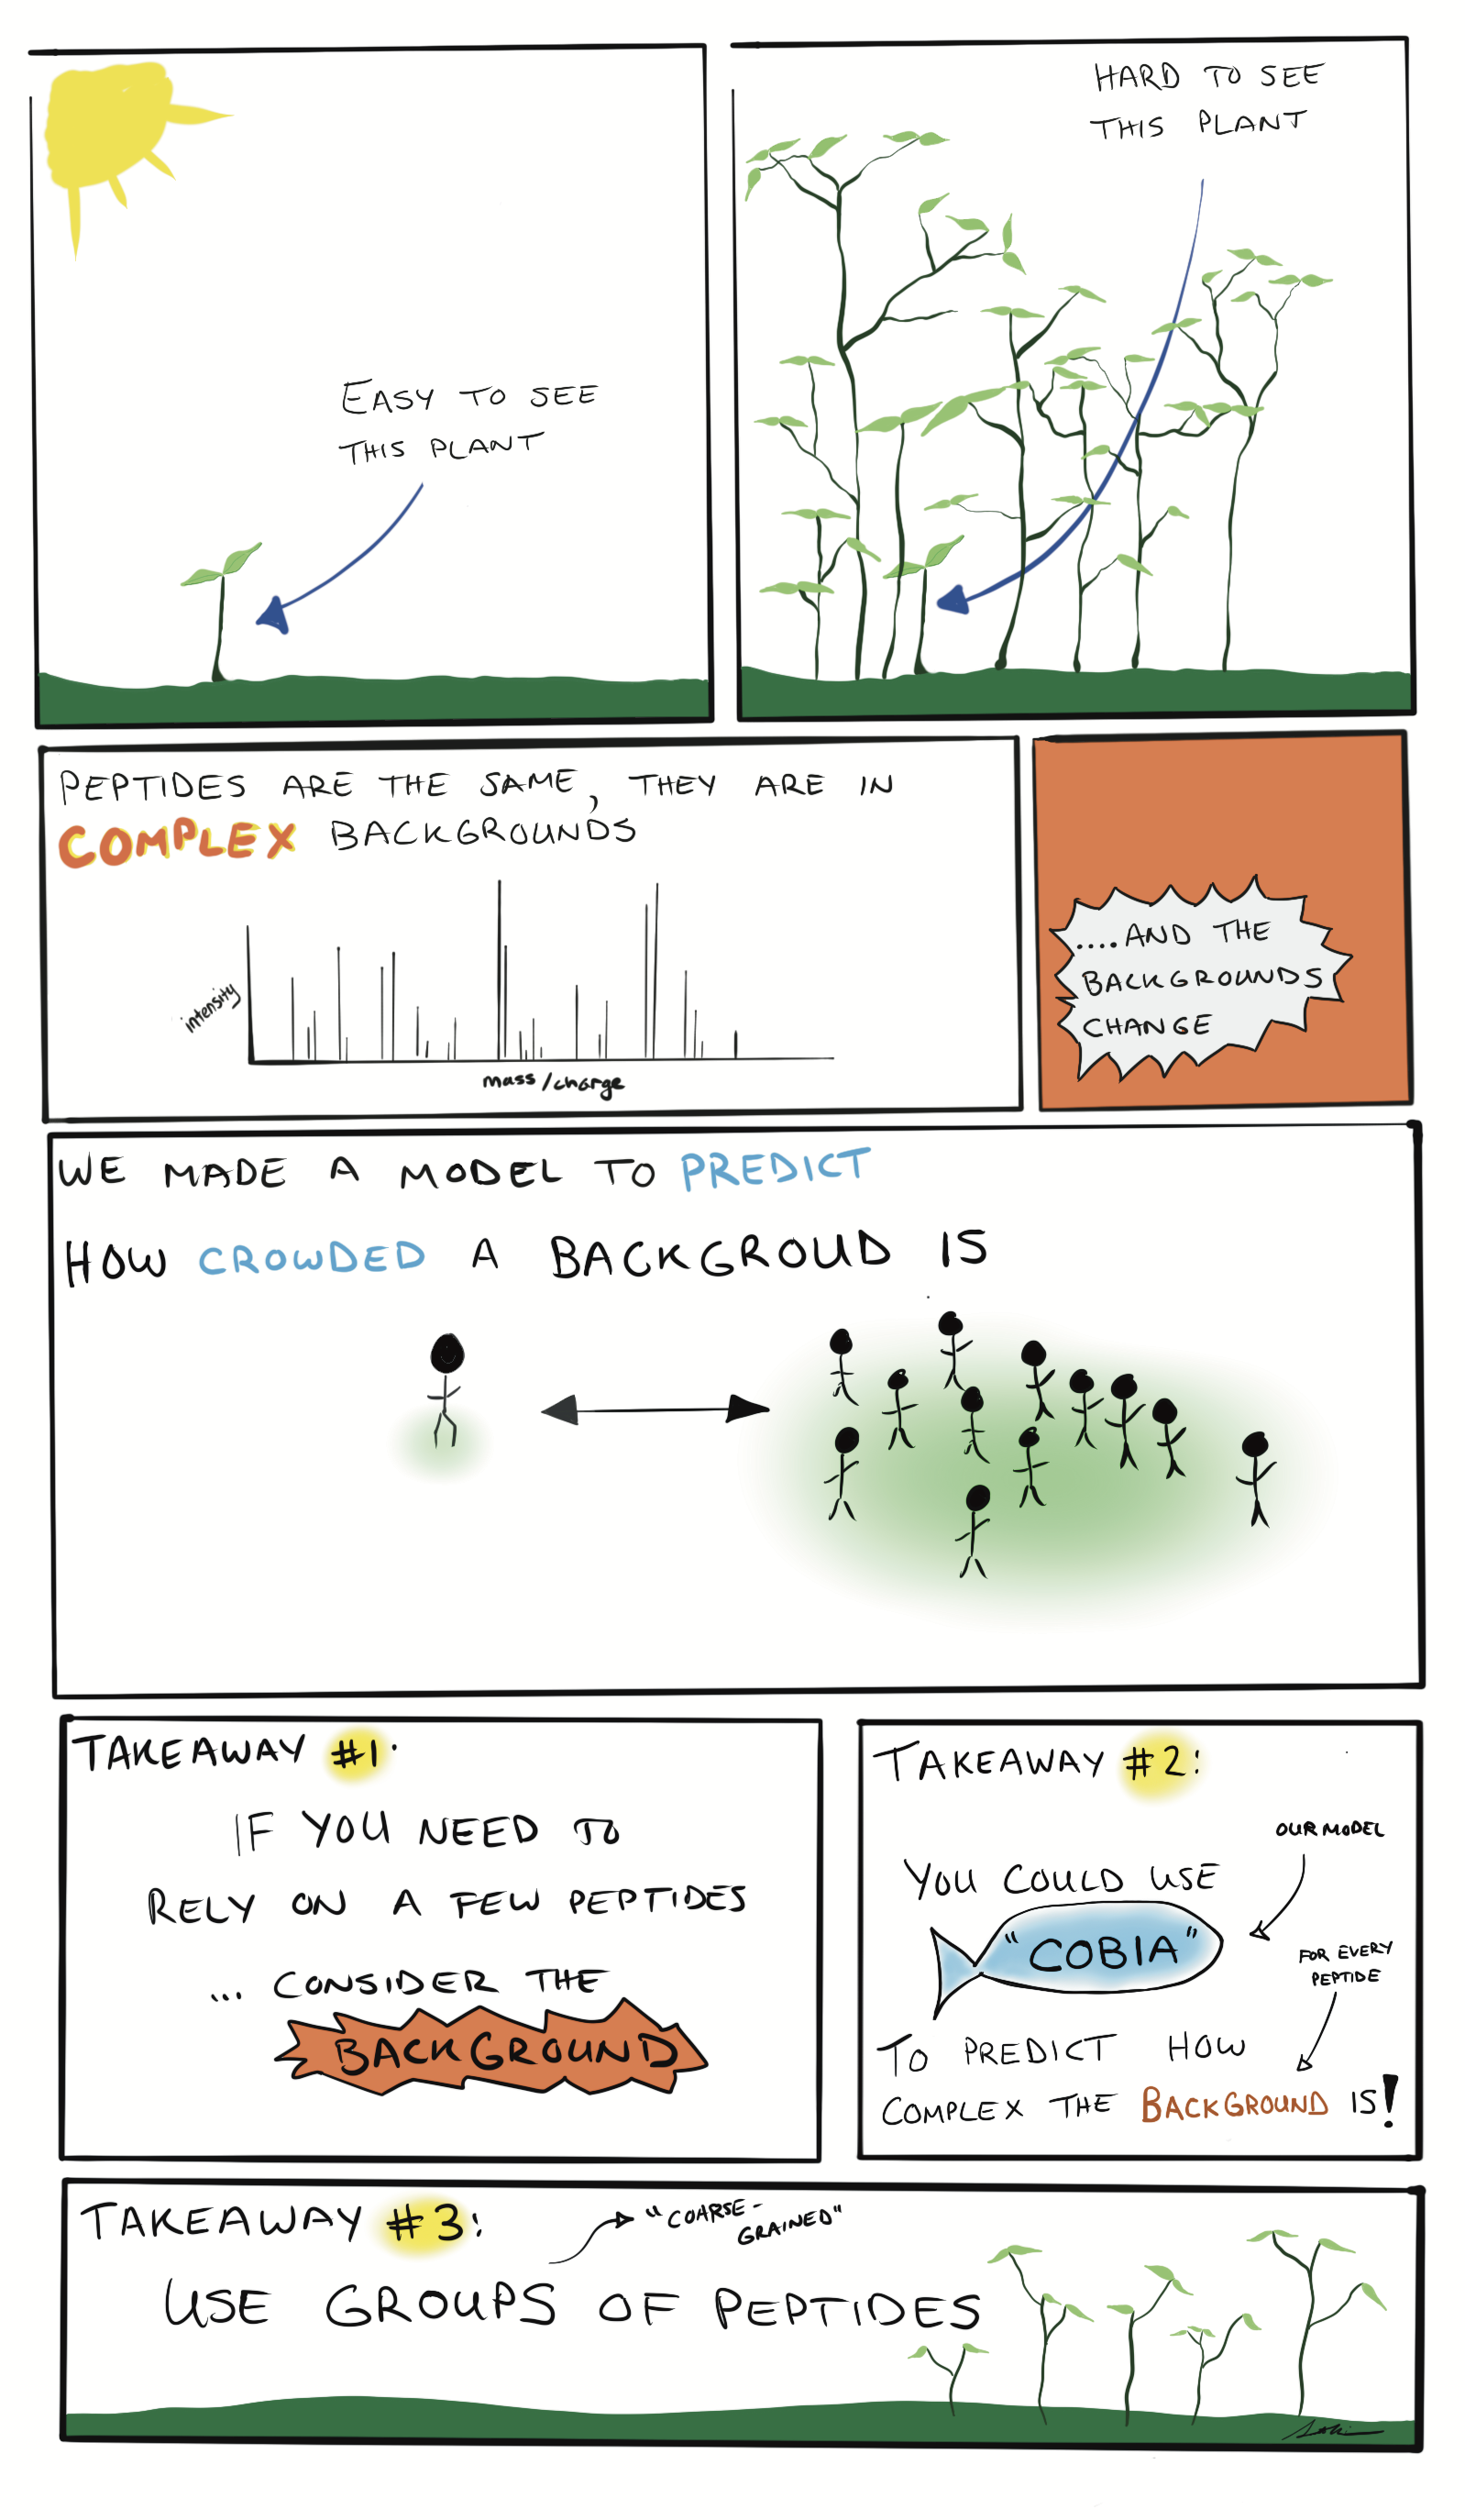 EASY TO SEE
THIS PLANT
HARD TO SEE
THIS PLANT
PEPTIDES ARE THE SAME, THEY ARE IN
COMPLEX BACKGROUNDS
intensity
mass/charge
....AND THE
BACKGROUNDS
CHANGE
WE MADE A MODEL TO PREDICT
HOW CROWDED A BACKGROUD IS
TAKEAWAY #1:
IF YOU NEED TO
RELY ON A FEW PEPTIDES
... CONSIDER THE
BACKGROUND
TAKEAWAY #2:
OUR MODEL
YOU COULD USE
"COBIA"
FOR EVERY
PEPTIDE
TO PREDICT HOW
COMPLEX THE BACKGROUND IS!
TAKEAWAY #3:
"COARSE-
GRAINED"
USE GROUPS OF PEPTIDES